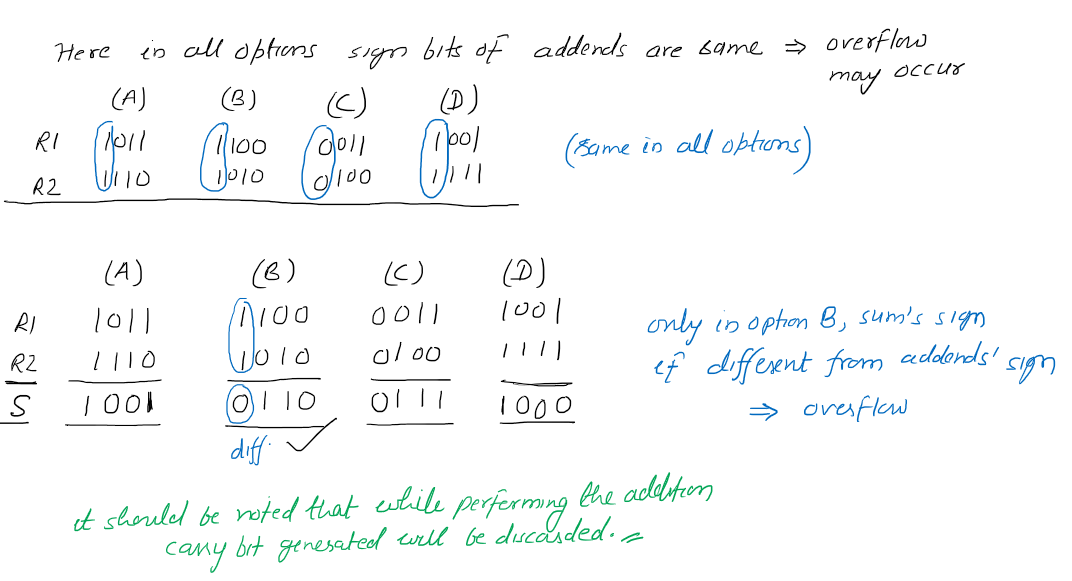 Here in all options sign bits of addends are same ⇒ overflow
may occur
(A) (B) (C) (D)
R1 1011 1100 0011 1001 (same in all options)
R2 1110 1010 0100 1111
(A) (B) (C) (D)
R1 1011 1100 0011 1001 only in option B, sum's sign
R2 1110 1010 0100 1111 if different from addends' sign
S 1001 0110 0111 1000 ⇒ overflow
diff. ✓
it should be noted that while performing the addition
carry bit generated will be discarded.